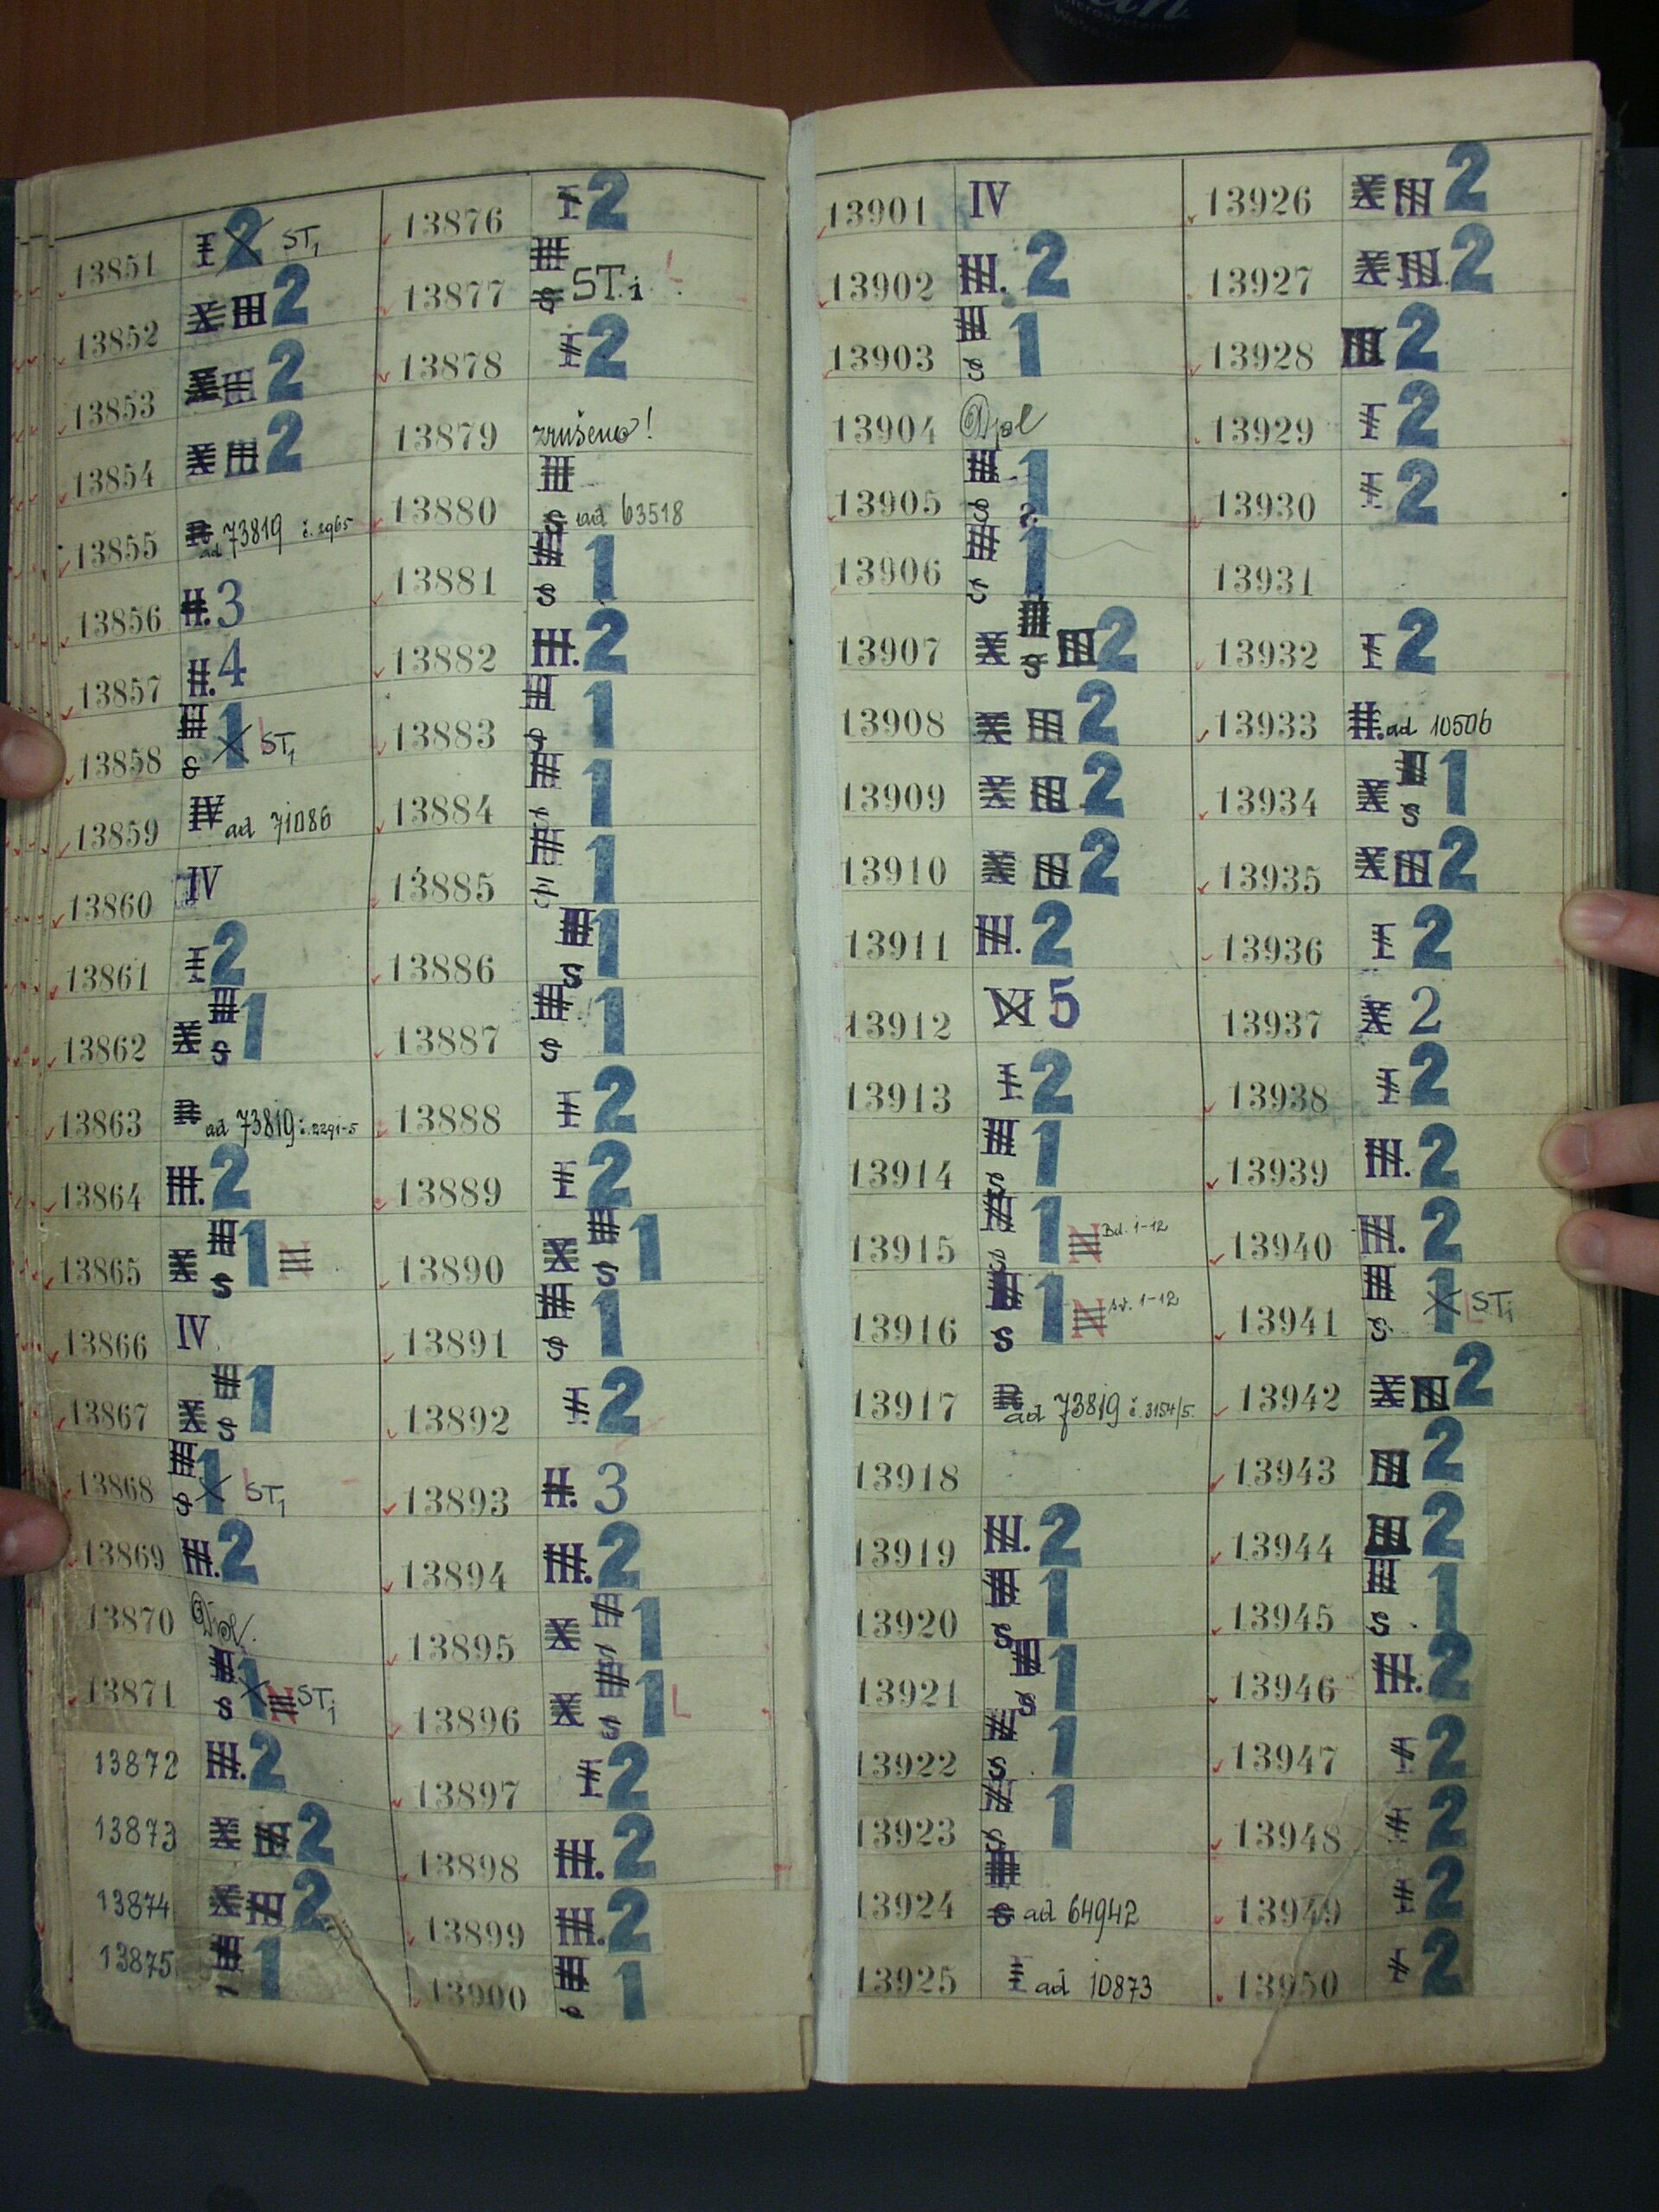 13851 I 2 ST1
13852 X III 2
13853 X III 2
13854 X III 2
13855 R ad 73819 č. 2965
13856 II. 3
13857 II. 4
13858 III S 1 L ST1
13859 IV ad 71086
13860 IV
13861 I 2
13862 X III S 1
13863 R ad 73819 č. 2291-5
13864 III. 2
13865 X III S 1 N
13866 IV
13867 X III S 1
13868 III S 1 L ST1
13869 III. 2
13870
13871 III S 1 N ST1
13872 III. 2
13873 X III 2
13874 X III 2
13875 III 1
13876 I 2
13877 III S ST. 1 L
13878 I 2
13879 zrušeno!
13880 III S ad 63518
13881 III S 1
13882 III. 2
13883 III S 1
13884 III S 1
13885 III S 1
13886 III S 1
13887 III S 1
13888 I 2
13889 I 2
13890 X III S 1
13891 III S 1
13892 I 2
13893 II. 3
13894 III. 2
13895 X III S 1
13896 X III S 1 L
13897 I 2
13898 III. 2
13899 III. 2
13900 III 1
13901 IV
13902 III. 2
13903 III S 1
13904
13905 III S 1 2
13906 III S 1
13907 X III S III 2
13908 X III 2
13909 X III 2
13910 X III 2
13911 III. 2
13912 VI 5
13913 I 2
13914 III S 1
13915 III S 1 N Bd. 1-12
13916 III S 1 N sv. 1-12
13917 R ad 73819 č. 3154/5.
13918
13919 III. 2
13920 III S 1
13921 III S 1
13922 III S 1
13923 III S 1
13924 III S ad 64942
13925 I ad 10873
13926 X III 2
13927 X III 2
13928 III 2
13929 I 2
13930 I 2
13931
13932 I 2
13933 II. ad 10506
13934 X III S 1
13935 X III 2
13936 I 2
13937 X 2
13938 I 2
13939 III. 2
13940 III. 2
13941 III S 1 L ST1
13942 X III 2
13943 III 2
13944 III 2
13945 III S 1
13946 III. 2
13947 I 2
13948 I 2
13949 I 2
13950 I 2